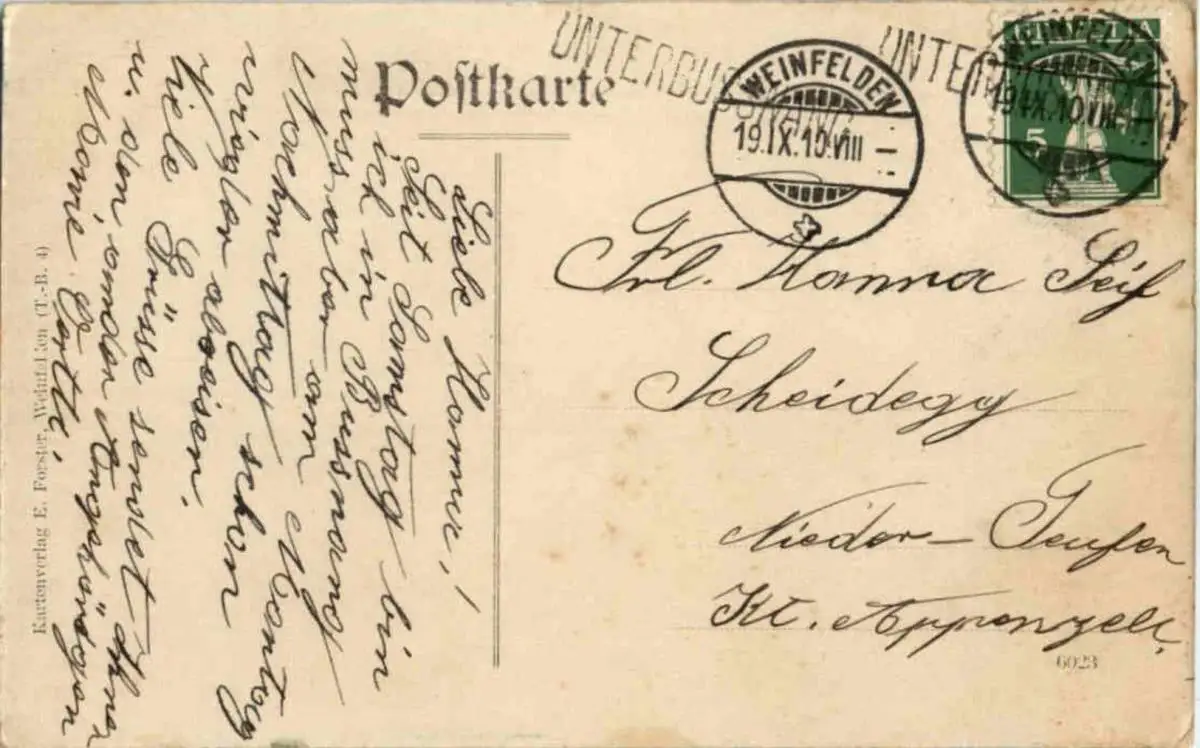 Postkarte
UNTERBUSSNANG
UNTER
WEINFELDEN
19.IX.10.VIII
WEINFELDEN
19.IX.10.VIII
HELVETIA
5
Liebe Hanna!
Seit Samstag bin
ich in Bussnang
muss aber am Montag
Nachmittag schon
wieder abreisen.
Viele Grüsse sendet Ihnen
u. den andern Angehörigen
Marie
Frl. Hanna
Scheidegg
Nieder-Teufen
Kt. Appenzell.
6023
Kartonverlag E. Forster, Weinfelden (T.-R. 4)